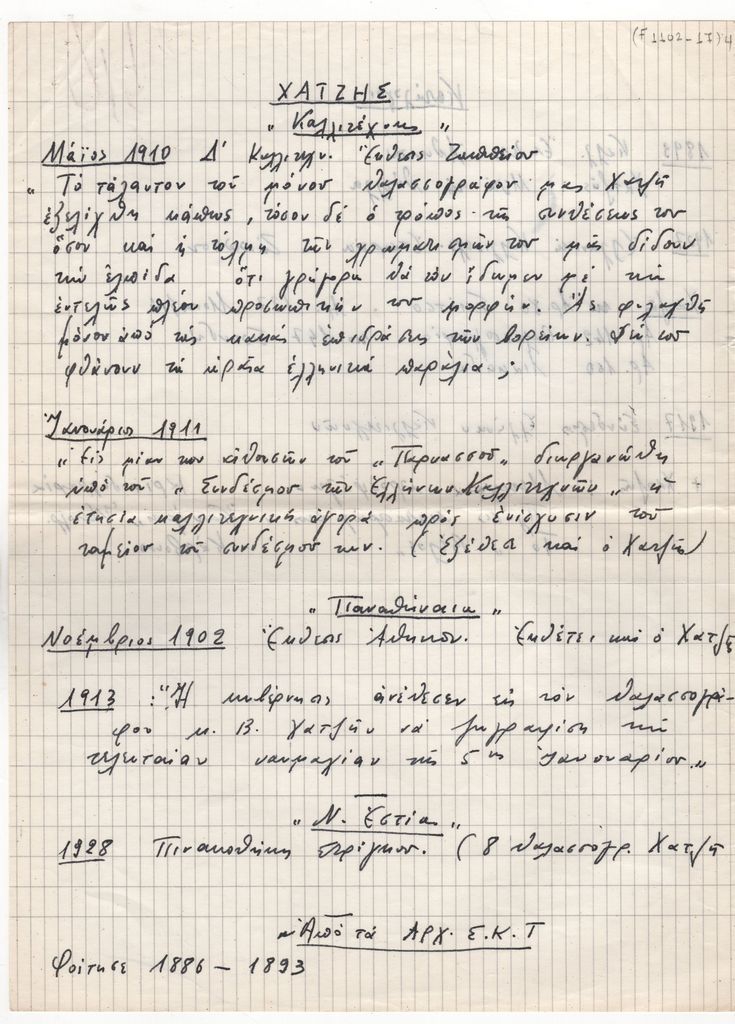 (F 1102-17) 4
ΧΑΤΖΗΣ
„ Καλλιτέχνης „
Μάϊος 1910 Δ' Καλλιτεχν. Έκθεσις Ζαππείου
„ Τό τάλαντον τοῦ μόνου θαλασσογράφου μας Χατζῆ
ἐξελίχθη κάπως, τόσον δέ ὁ τρόπος τῆς συνθέσεως του
ὅσον καί ἡ τόλμη τῶν χρωματισμῶν του μᾶς δίδουν
τήν ἐλπίδα ὅτι γρήγορα θά τόν ἴδωμεν μέ τήν
ἐντελῶς πλέον προσωπικήν του μορφήν. Ἄς φυλαχθῇ
μόνον ἀπό τάς κακάς ἐπιδράσεις τῶν βορείων. Δέν τοῦ
φθάνουν τά ὡραῖα ἑλληνικά παράλια;
Ἰανουάριος 1911
„ Εἰς μίαν των αἰθουσῶν τοῦ „ Παρνασσοῦ „ διωργανώθη
ὑπό τοῦ „ Συνδέσμου τῶν Ἑλλήνων Καλλιτεχνῶν „ ἡ
ἐτησία καλλιτεχνική ἀγορά πρός ἐνίσχυσιν τοῦ
ταμείου τοῦ συνδέσμου των. (Ἐξέθεσε καί ὁ Χατζῆς)
„ Παναθήναια „
Νοέμβριος 1902 Ἔκθεσις Ἀθηνῶν. Ἐκθέτει καί ὁ Χατζῆς
1913 : "Ἡ κυβέρνησις ἀνέθεσεν εἰς τόν θαλασσογρά-
φον κ. Β. Χατζῆν νά ζωγραφίσῃ τήν
τελευταίαν ναυμαχίαν τῆς 5ης Ἰανουαρίου „
„ Ν. Ἑστία „
1928 Πινακοθήκη Στρίγκου. ( 8 θαλασσογρ. Χατζῆ
Ἀπό τά ΑΡΧ. Σ.Κ.Τ
Φοίτησε 1886 – 1893